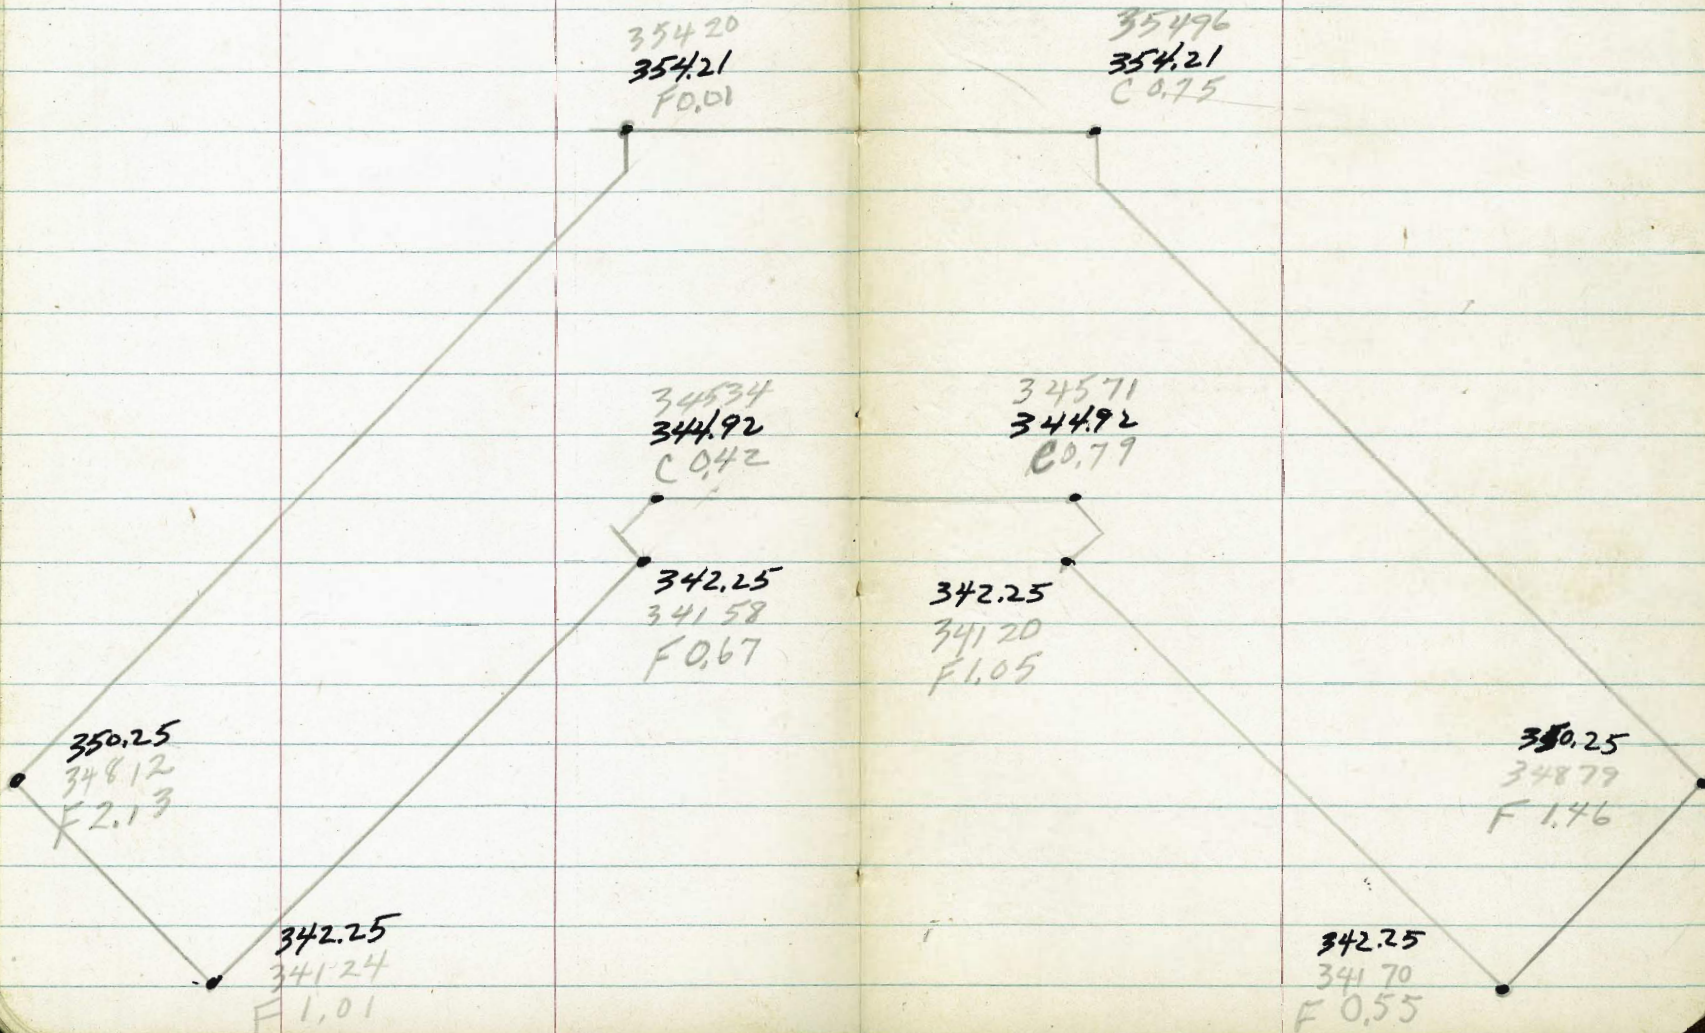 354 20
354.21
F 0.01
354 96
354.21
C 0.75
345 34
344.92
C 0.42
345 71
344.92
C 0.79
342.25
341 58
F 0.67
342.25
341 20
F 1.05
350.25
348 12
F 2.13
350.25
348 79
F 1.46
342.25
341 24
F 1.01
342.25
341 70
F 0.55